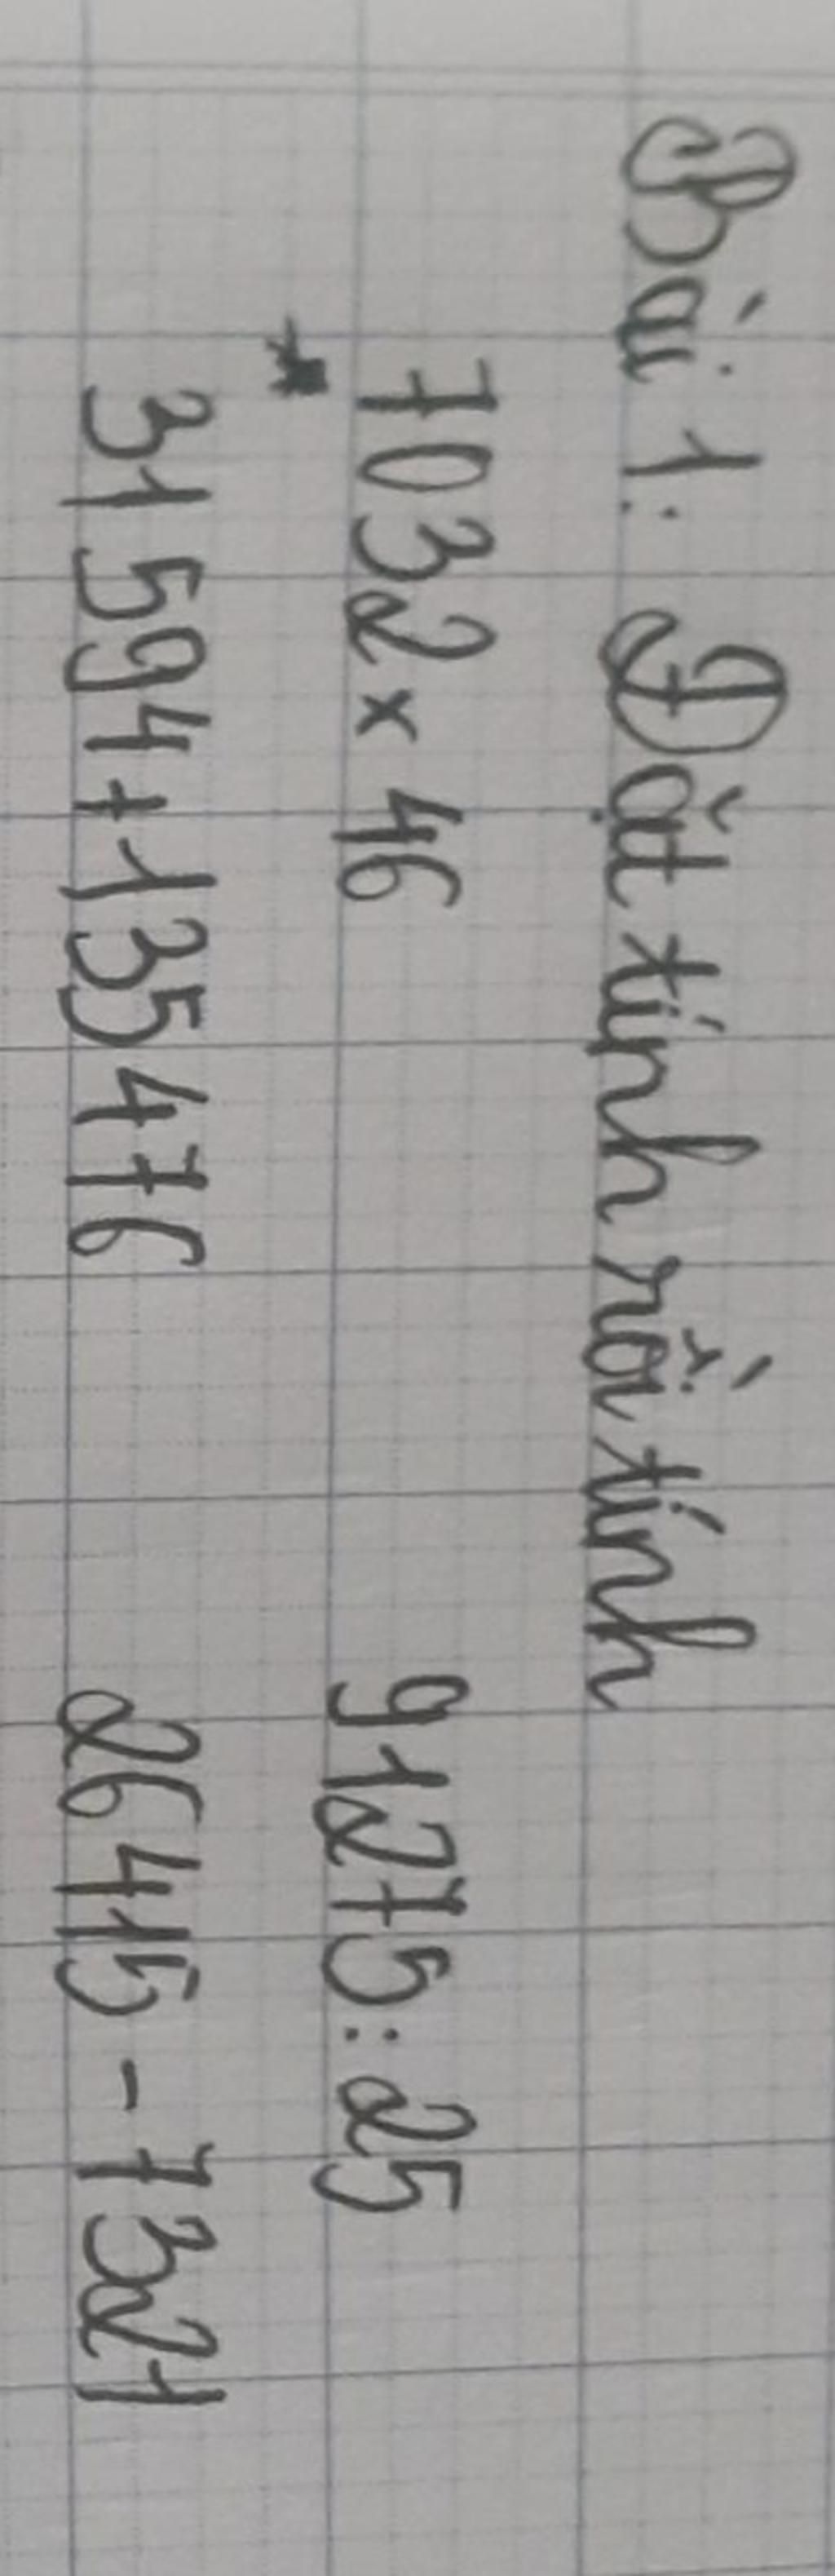 Bài 1: Đặt tính rồi tính
7032 x 46 91275 : 25
31 594 + 135 476 26 415 - 7321